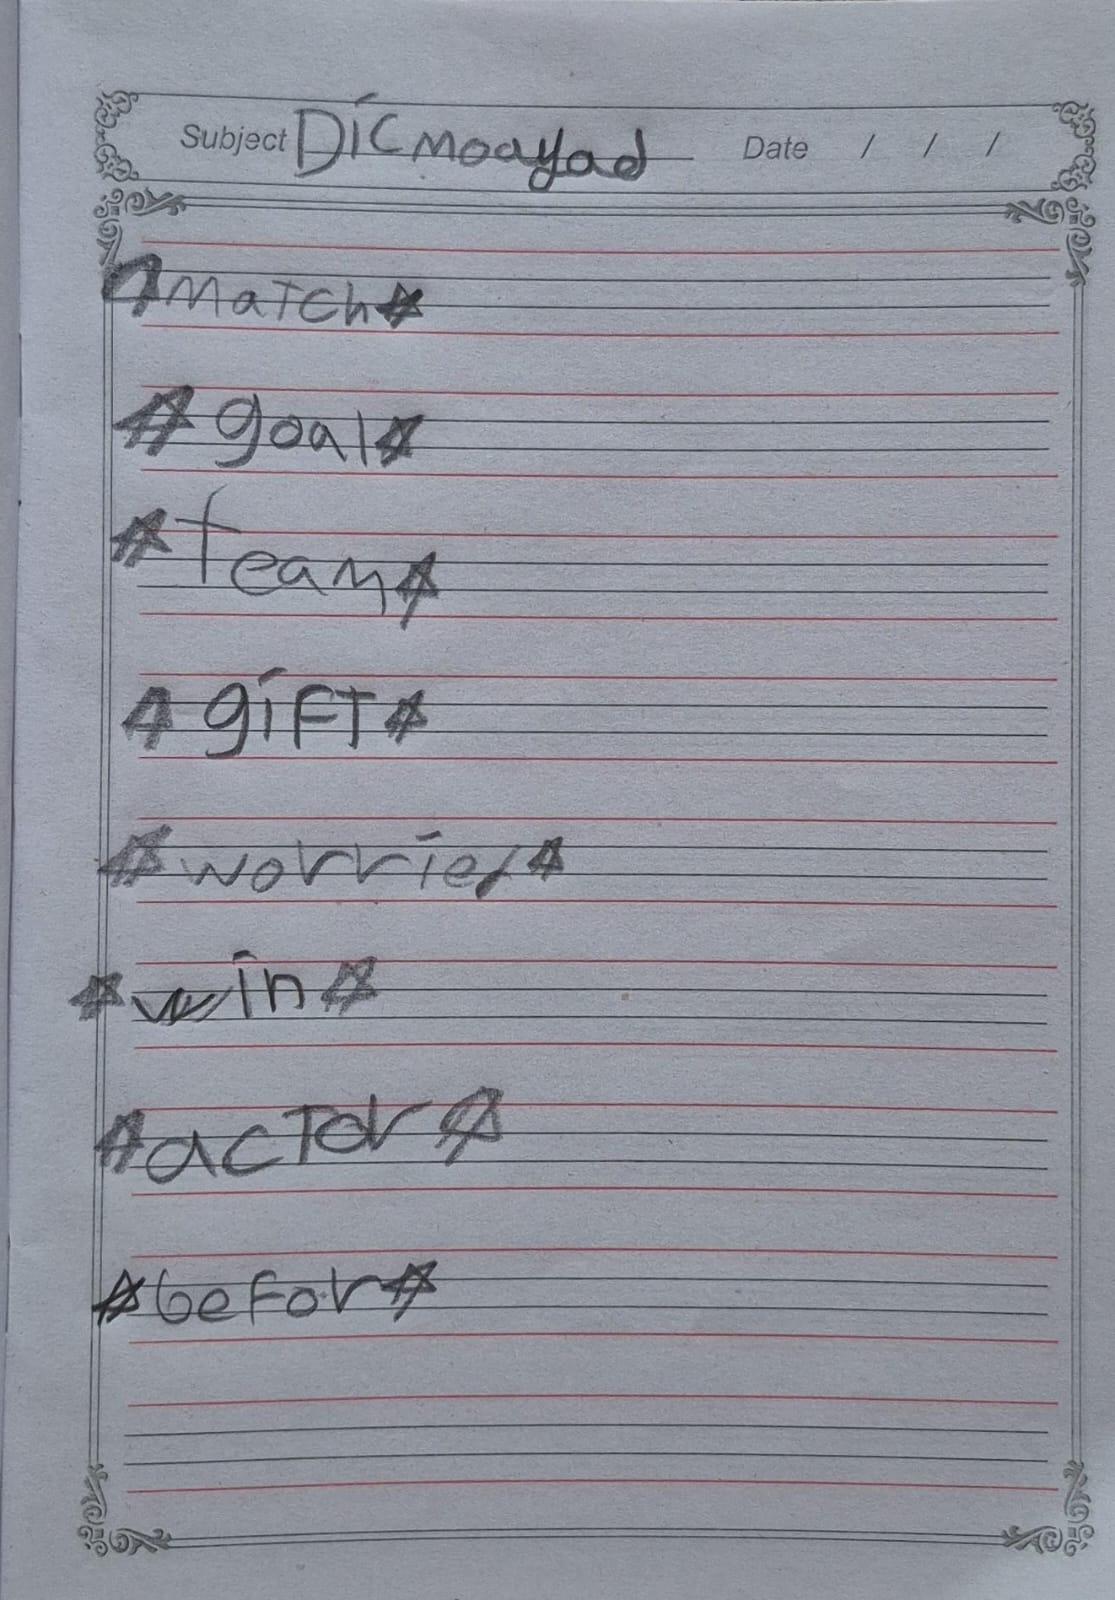 Subject Dicmoayad Date / / /
match
goal
team
gift
worries
win
actor
befor